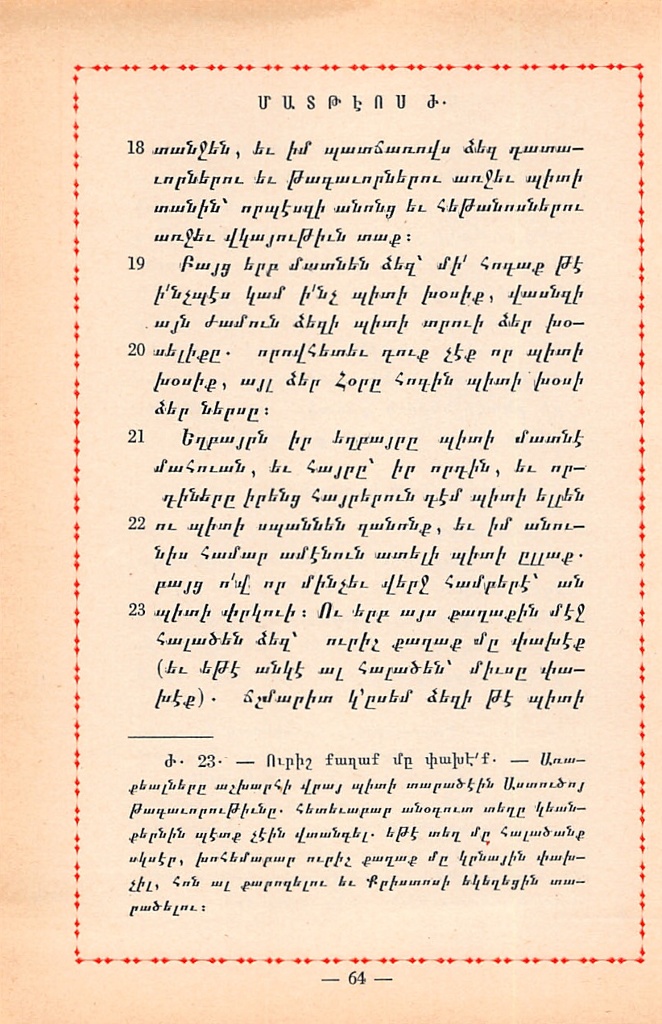 ՄԱՏԹԷՈՍ Ժ.
18 տանջեն, եւ իմ պատճառովս ձեզ դատա–
ւորներու եւ թագաւորներու առջեւ պիտի
տանին՝ որպէսզի անոնց եւ հեթանոսներու
առջեւ վկայութիւն տաք:
19 Բայց երբ մատնեն ձեզ՝ մի՛ հոգաք թէ
ի՛նչպէս կամ ի՛նչ պիտի խօսիք, վասնզի
այն ժամուն ձեզի պիտի տրուի ձեր խօ–
20 սելիքը. որովհետեւ դուք չէք որ պիտի
խօսիք, այլ ձեր Հօրը հոգին պիտի խօսի
ձեր ներսը:
21 Եղբայրն իր եղբայրը պիտի մատնէ
մահուան, եւ հայրը՝ իր որդին, եւ որ–
դիները իրենց հայրերուն դէմ պիտի ելլեն
22 ու պիտի սպաննեն զանոնք, եւ իմ անու–
նիս համար ամէնուն ատելի պիտի ըլլաք.
բայց ո՛վ որ մինչեւ վերջ համբերէ՝ ան
23 պիտի փրկուի: Ու երբ այս քաղաքին մէջ
հալածեն ձեզ՝ ուրիշ քաղաք մը փախէք
(եւ եթէ անկէ ալ հալածեն՝ միւսը փա–
խէք). Ճշմարիտ կ՚ըսեմ ձեզի թէ պիտի
Ժ. 23. — Ուրիշ քաղաք մը փախէ՛ք. — Առա–
քեալները աշխարհի վրայ պիտի տարածէին Աստուծոյ
թագաւորութիւնը. հետեւաբար անօգուտ տեղը կեան–
քերնին պէտք չէին վտանգել. եթէ տեղ մը հալածանք
սկսէր, խոհեմաբար ուրիշ քաղաք մը կրնային փախ–
չիլ, հոն ալ քարոզելու եւ Քրիստոսի եկեղեցին տա–
րածելու:
— 64 —